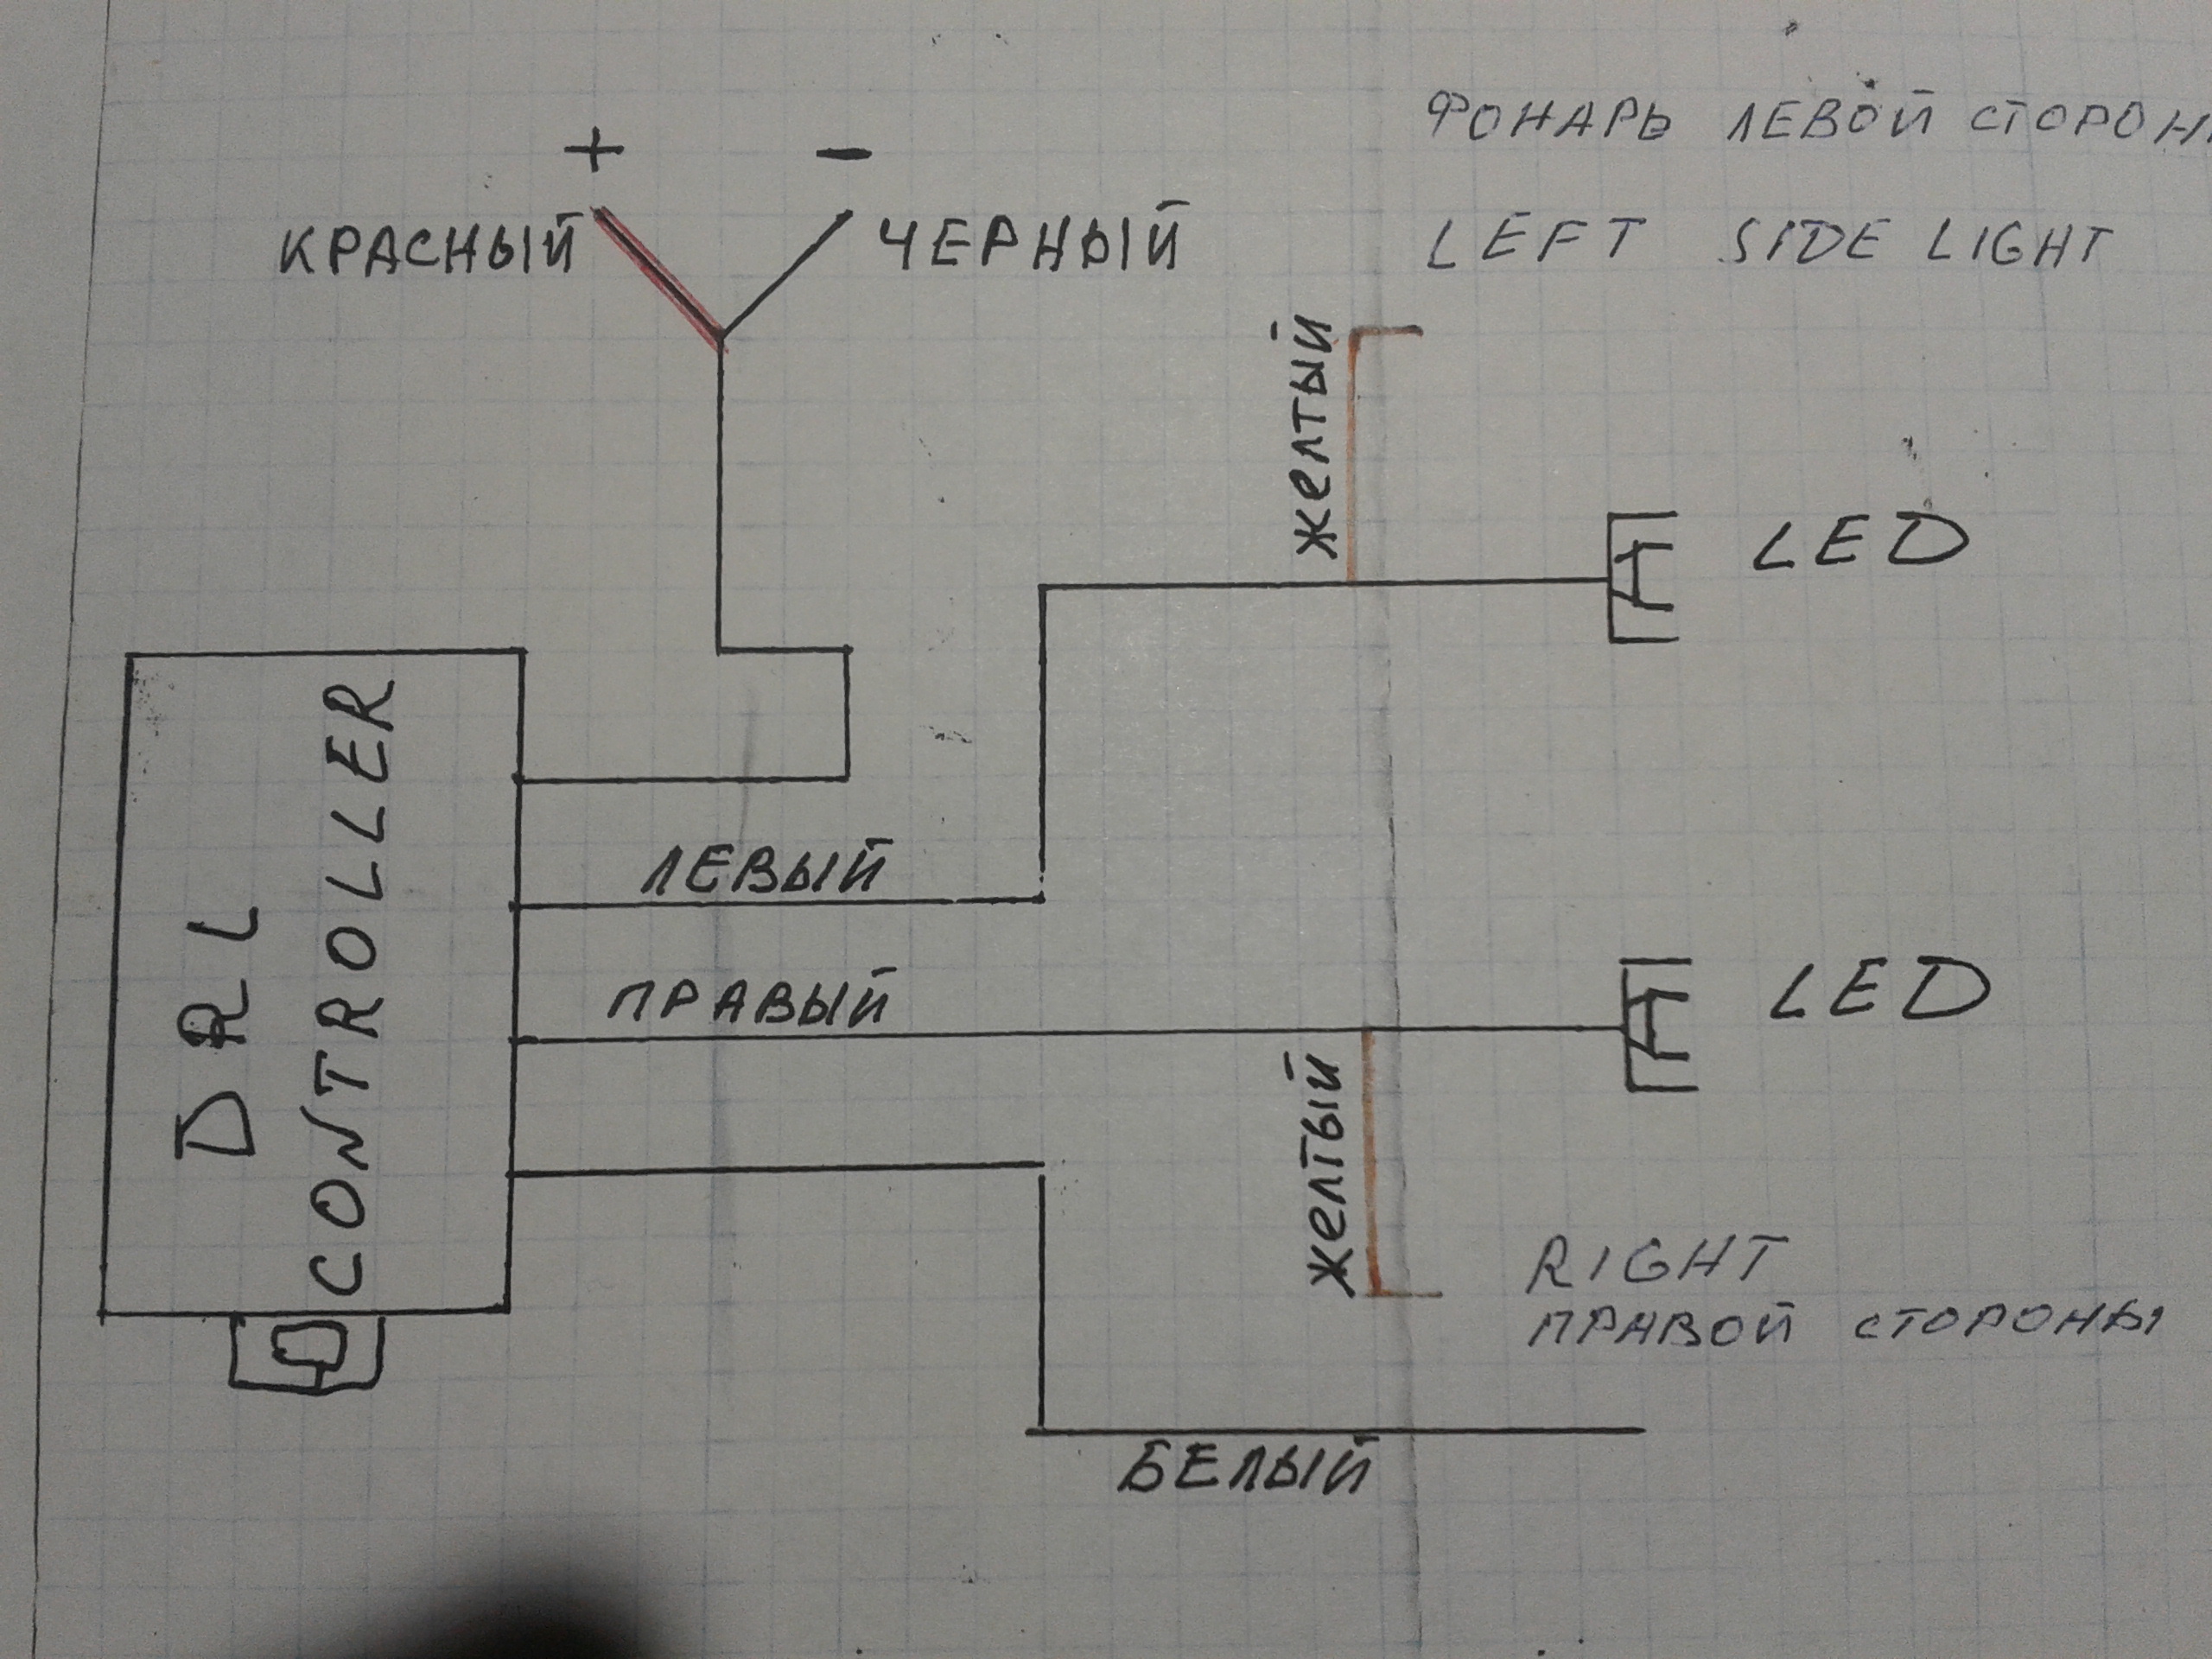 + -
КРАСНЫЙ ЧЕРНЫЙ
ФОНАРЬ ЛЕВОЙ СТОРОН
LEFT SIDE LIGHT
желтый
LED
DRL
CONTROLLER
ЛЕВЫЙ
ПРАВЫЙ
LED
желтый
RIGHT
ПРАВОЙ СТОРОНЫ
БЕЛЫЙ